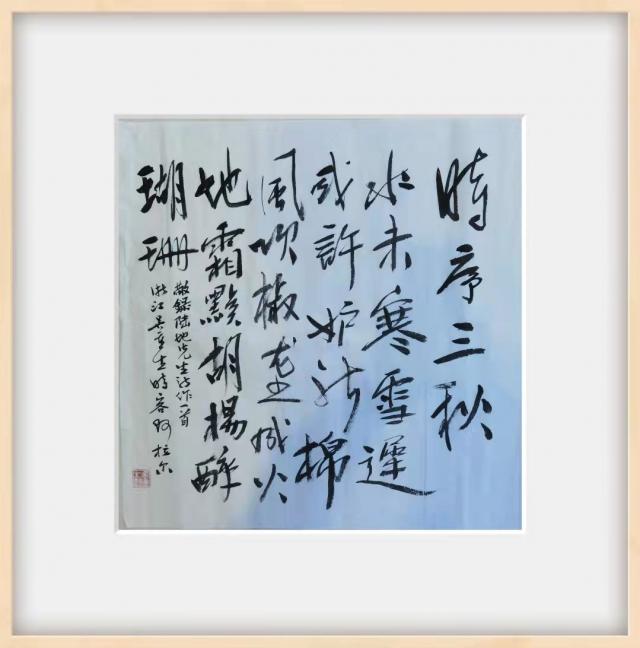 時序三秋
水未寒雪遲
或許妒新棉
風吹椒成火
地霜點胡楊醉
瑚珊
敬錄陸地先生詩作一首
浙江時客阿拉尔